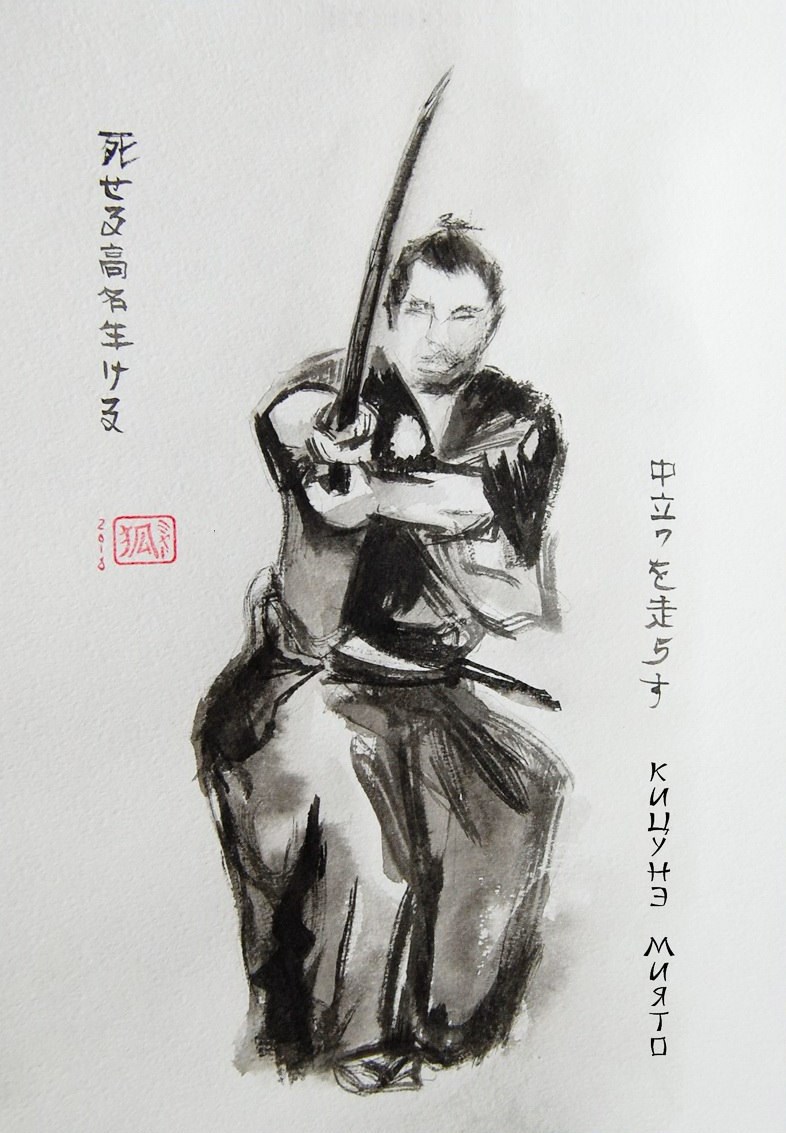 死せる高名生ける
中立っを走らす
КИЦУНЭ МИЯТО
2018
狐